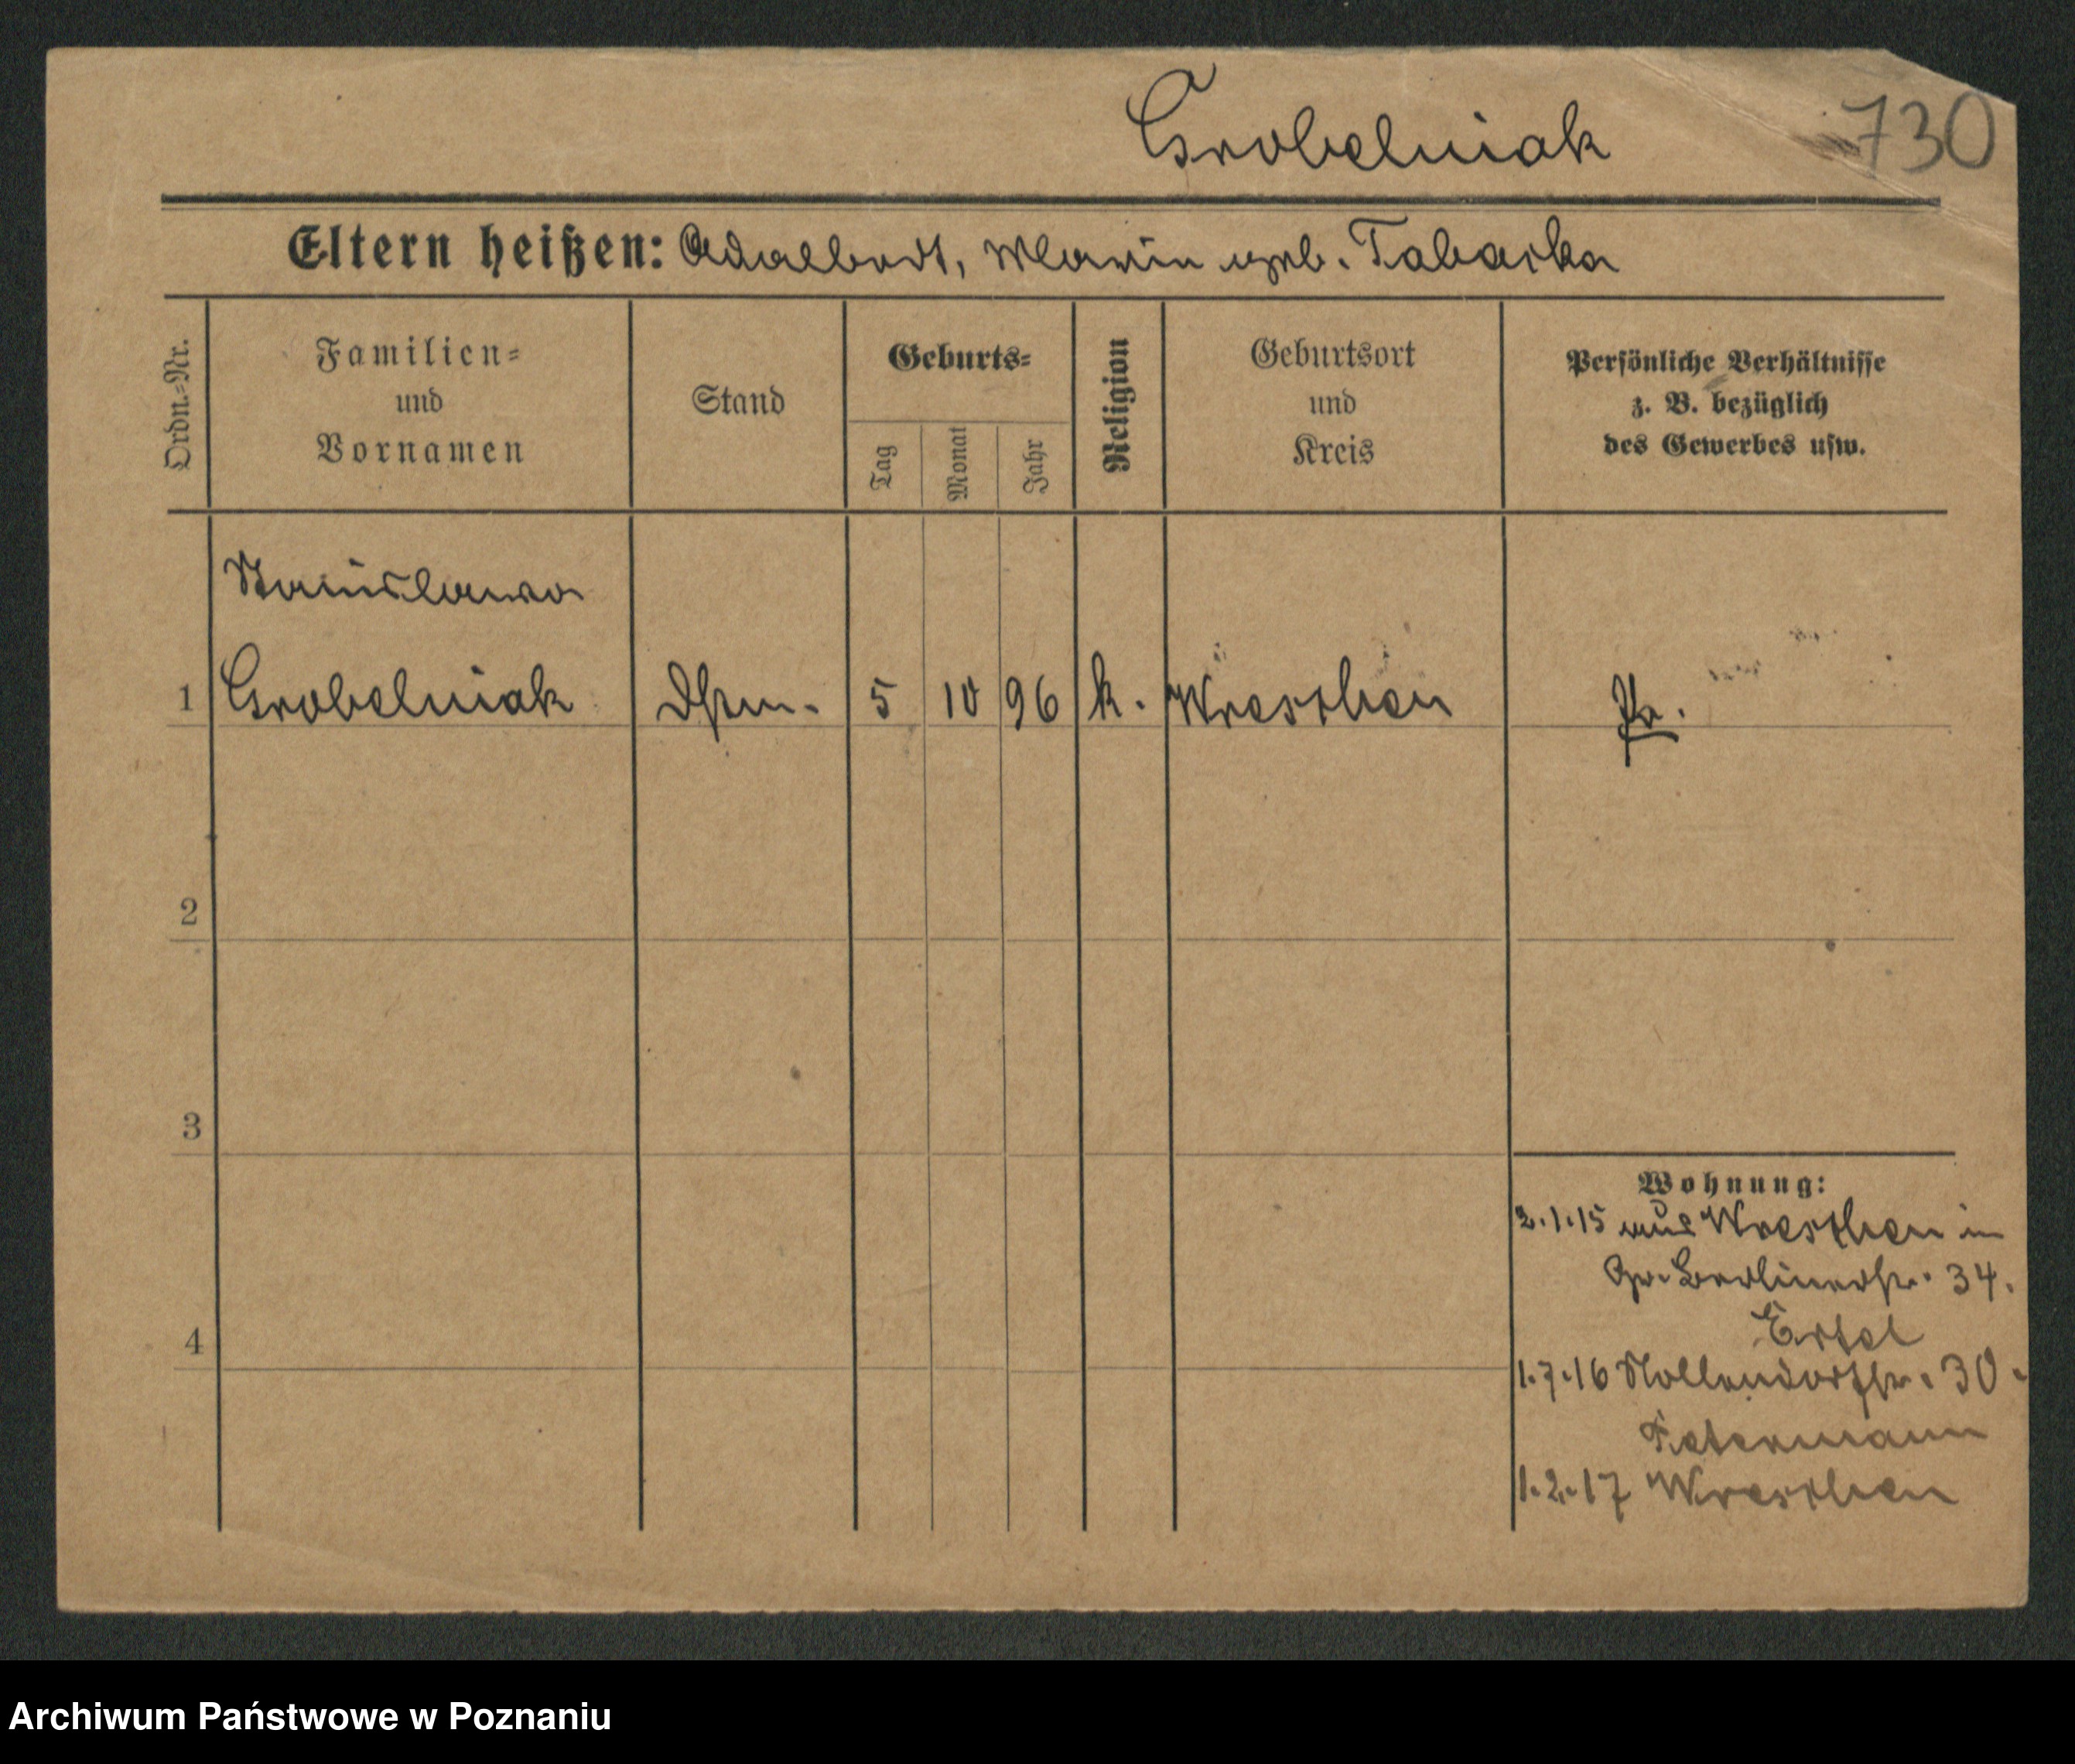 Grobelniak
730
Eltern heißen: Adalbert, Marie geb. Tabarka
Ordn.=Nr.
Familien=
und
Vornamen
Stand
Geburts=
Tag
Monat
Jahr
Religion
Geburtsort
und
Kreis
Persönliche Verhältnisse
z. B. bezüglich
des Gewerbes usw.
Stanislawa
1 Grobelniak Dstm. 5 10 96 k. Wreschen Pr.
2
3
4
Wohnung:
2.1.15 aus Wreschen in
Gr. Berlinerstr. 34.
Ertel
1.7.16 Nollendorfstr. 30.
Fetermann
1.2.17 Wreschen
Archiwum Państwowe w Poznaniu